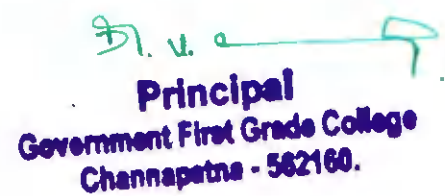 Principal
Government First Grade College
Channapatna - 562160.